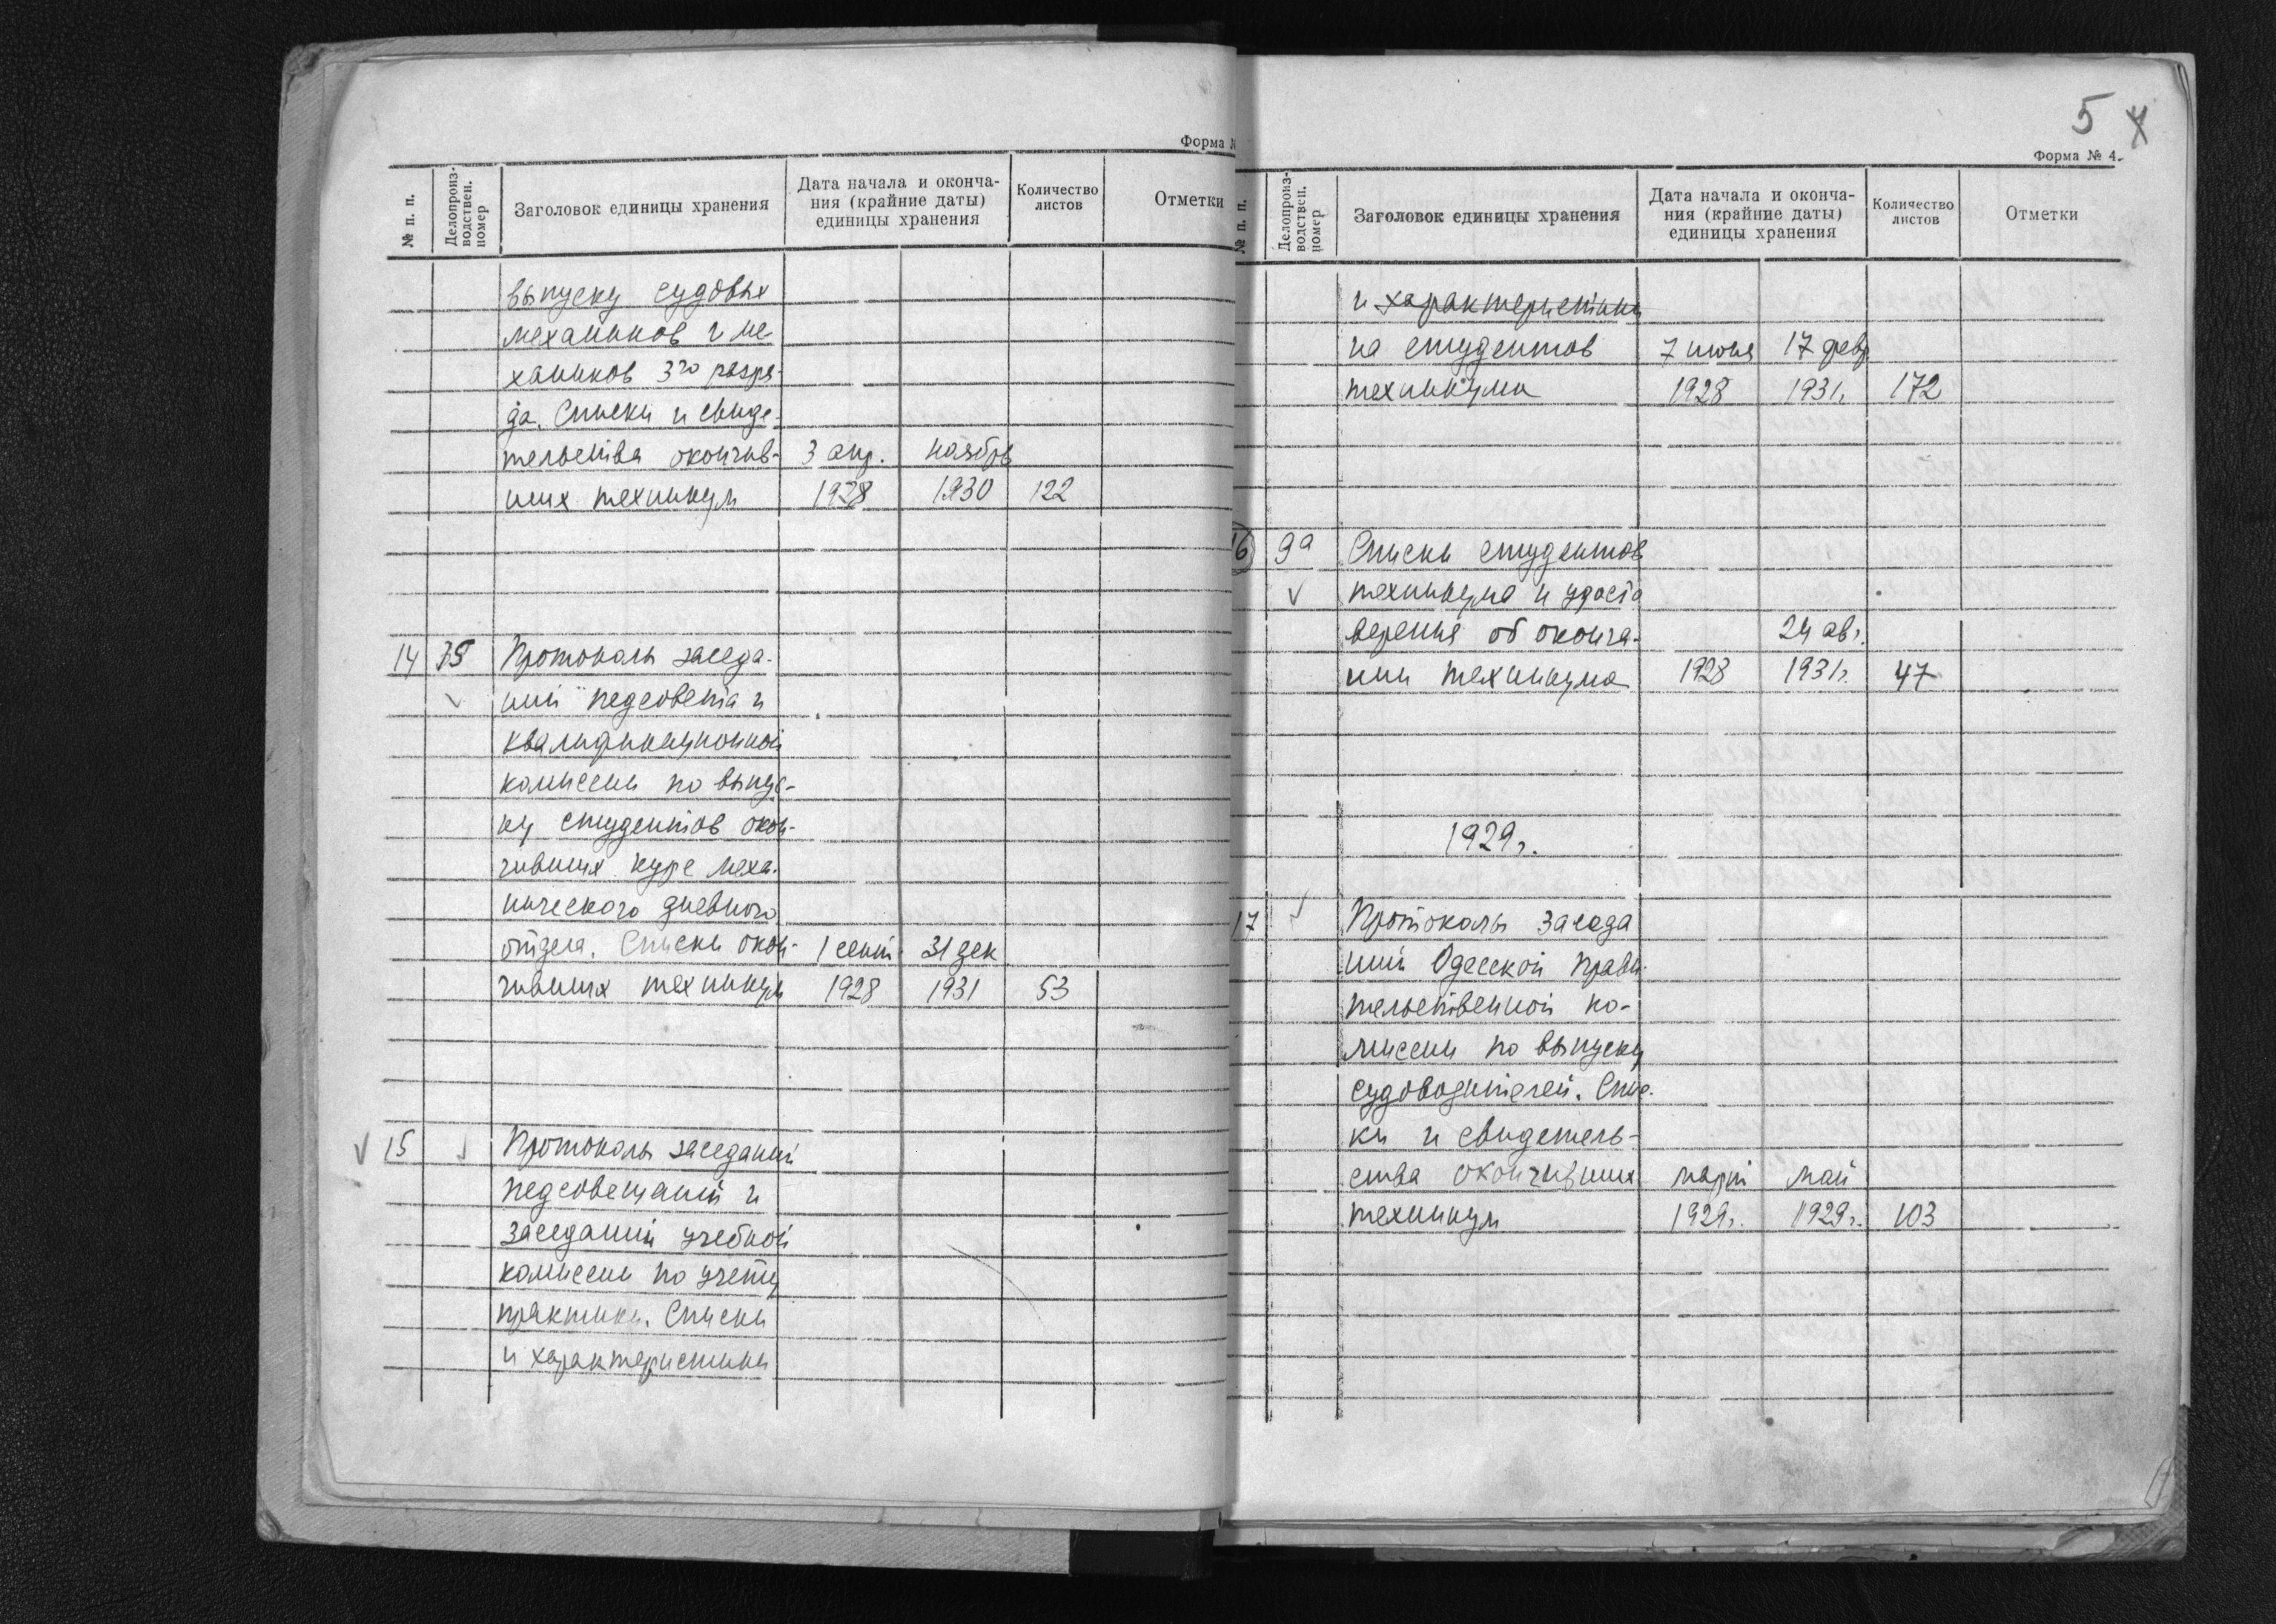 Форма №
№ п. п.
Делопроиз-
водствен.
номер
Заголовок единицы хранения
Дата начала и оконча-
ния (крайние даты)
единицы хранения
Количество
листов
Отметки
выпуску судовых
механиков и ме-
хаников 3го разря-
да. Списки и свиде-
тельства окончив- 3 апр. ноябрь
ших техникум 1928 1930 122
14 35 Протоколы заседа-
ний педсовета и
квалификационной
комиссии по выпус-
ку студентов окон-
чивших курс меха-
нического дневного
отдела. Списки окон- 1 сент. 31 дек
чивших техникум 1928 1931 53
√ 15 √ Протоколы заседаний
педсовещаний и
заседаний учебной
комиссии по учету
практики. Списки
и характеристики
5 4
Форма № 4.
№ п. п.
Делопроиз-
водствен.
номер
Заголовок единицы хранения
Дата начала и оконча-
ния (крайние даты)
единицы хранения
Количество
листов
Отметки
и характеристики
на студентов 7 июня 17 февр
техникума 1928 1931г. 172
16 9а Списки студентов
√ техникума и удосто
верения об оконча- 24 авг.
нии техникума 1928 1931г. 47
1929г.
17 √ Протоколы заседа
ний Одесской прави-
тельственной ко-
миссии по выпуску
судоводителей. Спис-
ки и свидетель-
ства окончивших март май
техникум 1929г. 1929г. 103